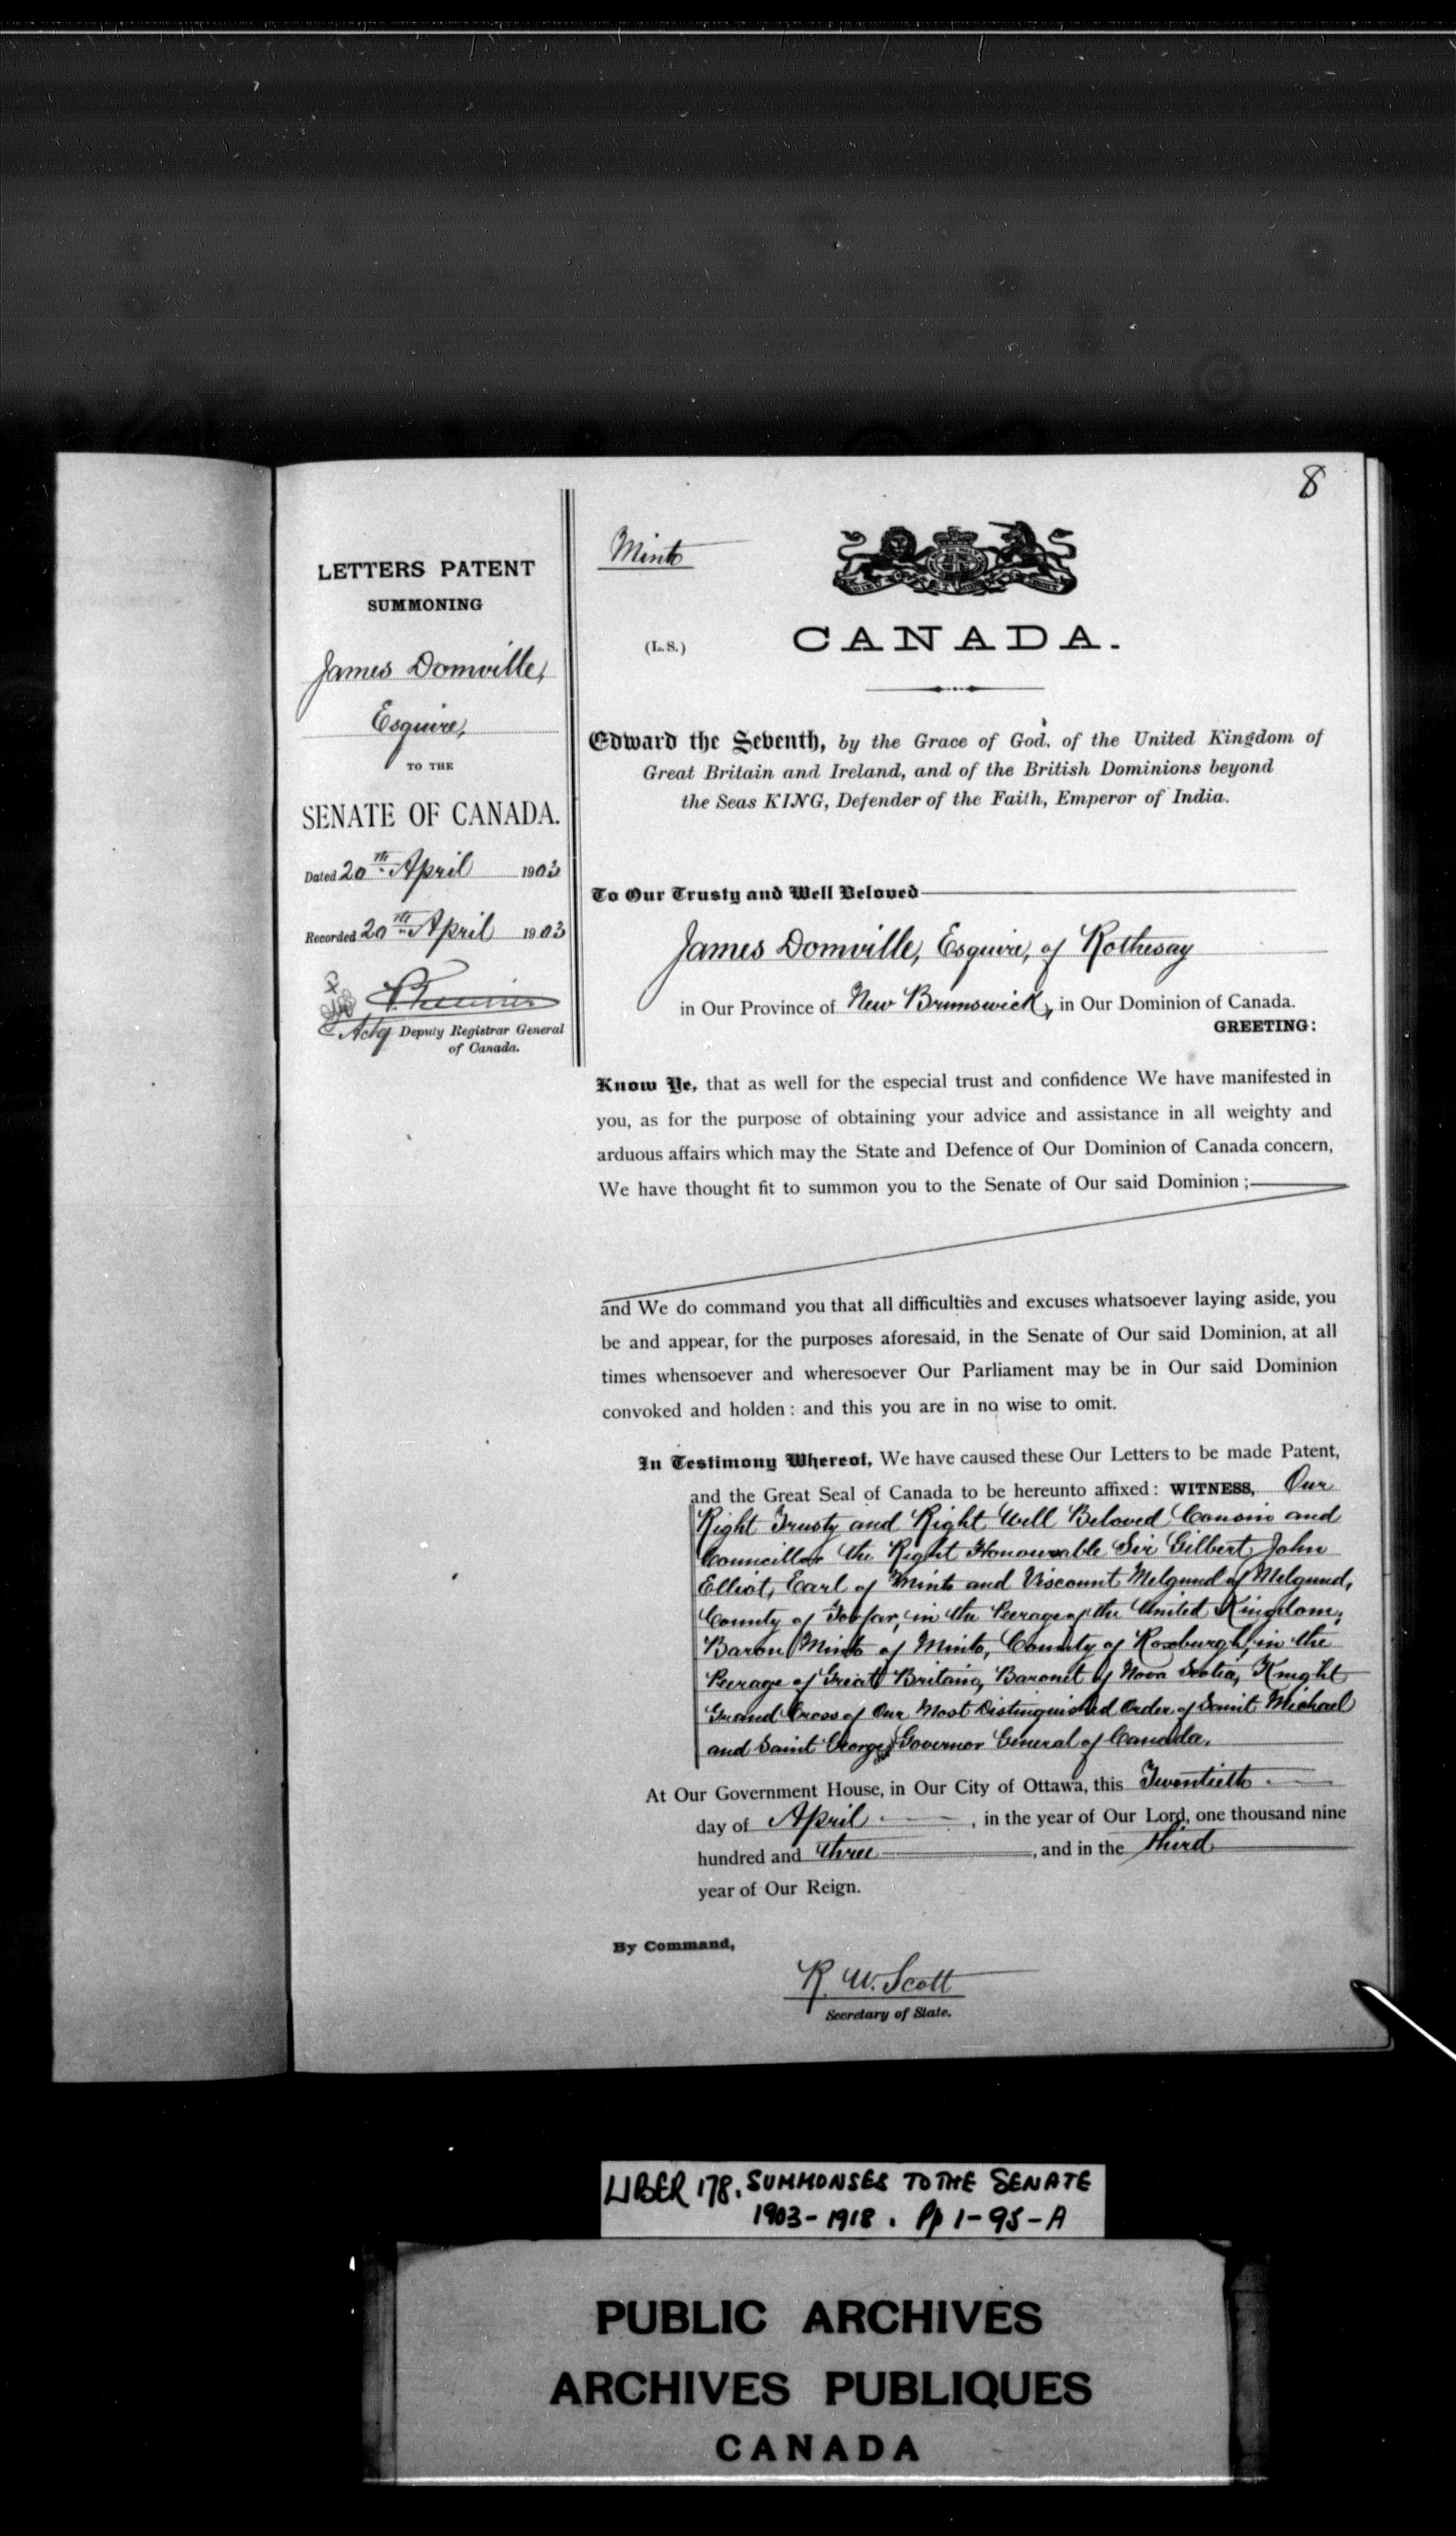 8
LETTERS PATENT
SUMMONING
James Domville,
Esquire,
TO THE
SENATE OF CANADA.
Dated 20th April 1903
Recorded 20th April 1903
Actg Deputy Registrar General
of Canada.
Minto
(L.S.)
CANADA.
Edward the Seventh, by the Grace of God, of the United Kingdom of
Great Britain and Ireland, and of the British Dominions beyond
the Seas KING, Defender of the Faith, Emperor of India.
To Our Trusty and Well Beloved
James Domville, Esquire, of Rothesay
in Our Province of New Brunswick, in Our Dominion of Canada.
GREETING:
Know Ye, that as well for the especial trust and confidence We have manifested in
you, as for the purpose of obtaining your advice and assistance in all weighty and
arduous affairs which may the State and Defence of Our Dominion of Canada concern,
We have thought fit to summon you to the Senate of Our said Dominion;
and We do command you that all difficulties and excuses whatsoever laying aside, you
be and appear, for the purposes aforesaid, in the Senate of Our said Dominion, at all
times whensoever and wheresoever Our Parliament may be in Our said Dominion
convoked and holden: and this you are in no wise to omit.
In Testimony Whereof, We have caused these Our Letters to be made Patent,
and the Great Seal of Canada to be hereunto affixed: WITNESS, Our
Right Trusty and Right Well Beloved Cousin and
Councillor the Right Honourable Sir Gilbert John
Elliot, Earl of Minto and Viscount Melgund of Melgund,
County of Forfar, in the Peerage of the United Kingdom,
Baron Minto of Minto, County of Roxburgh, in the
Peerage of Great Britain, Baronet of Nova Scotia, Knight
Grand Cross of Our Most Distinguished Order of Saint Michael
and Saint George, Governor General of Canada.
At Our Government House, in Our City of Ottawa, this Twentieth
day of April, in the year of Our Lord, one thousand nine
hundred and three, and in the third
year of Our Reign.
By Command,
R. W. Scott
Secretary of State.
LIBER 178. SUMMONSES TO THE SENATE
1903-1918. Pp 1-95-A
PUBLIC ARCHIVES
ARCHIVES PUBLIQUES
CANADA